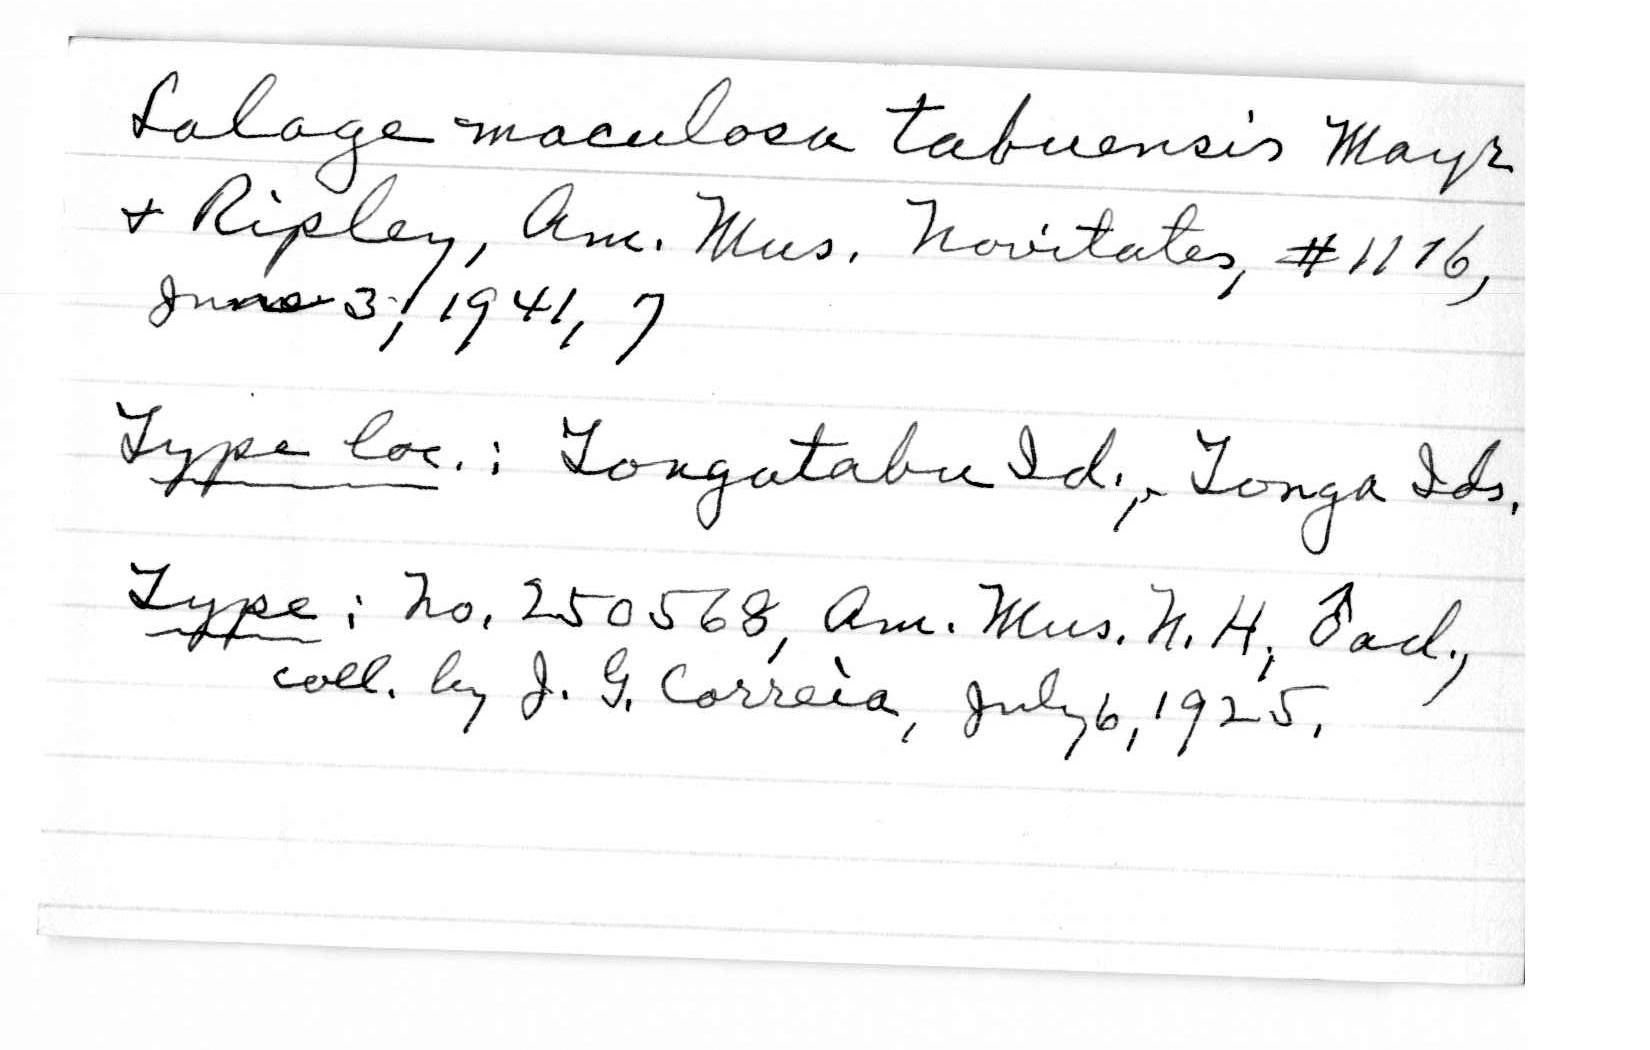 Lalage maculosa tabuensis Mayr
+ Ripley, Am. Mus. Novitates, #1116,
June 3, 1941, 7
Type loc.: Tongatabu Id., Tonga Ids.
Type: No. 250568, Am. Mus. N. H., ♂ ad.,
coll. by J. G. Correia, July 6, 1925.